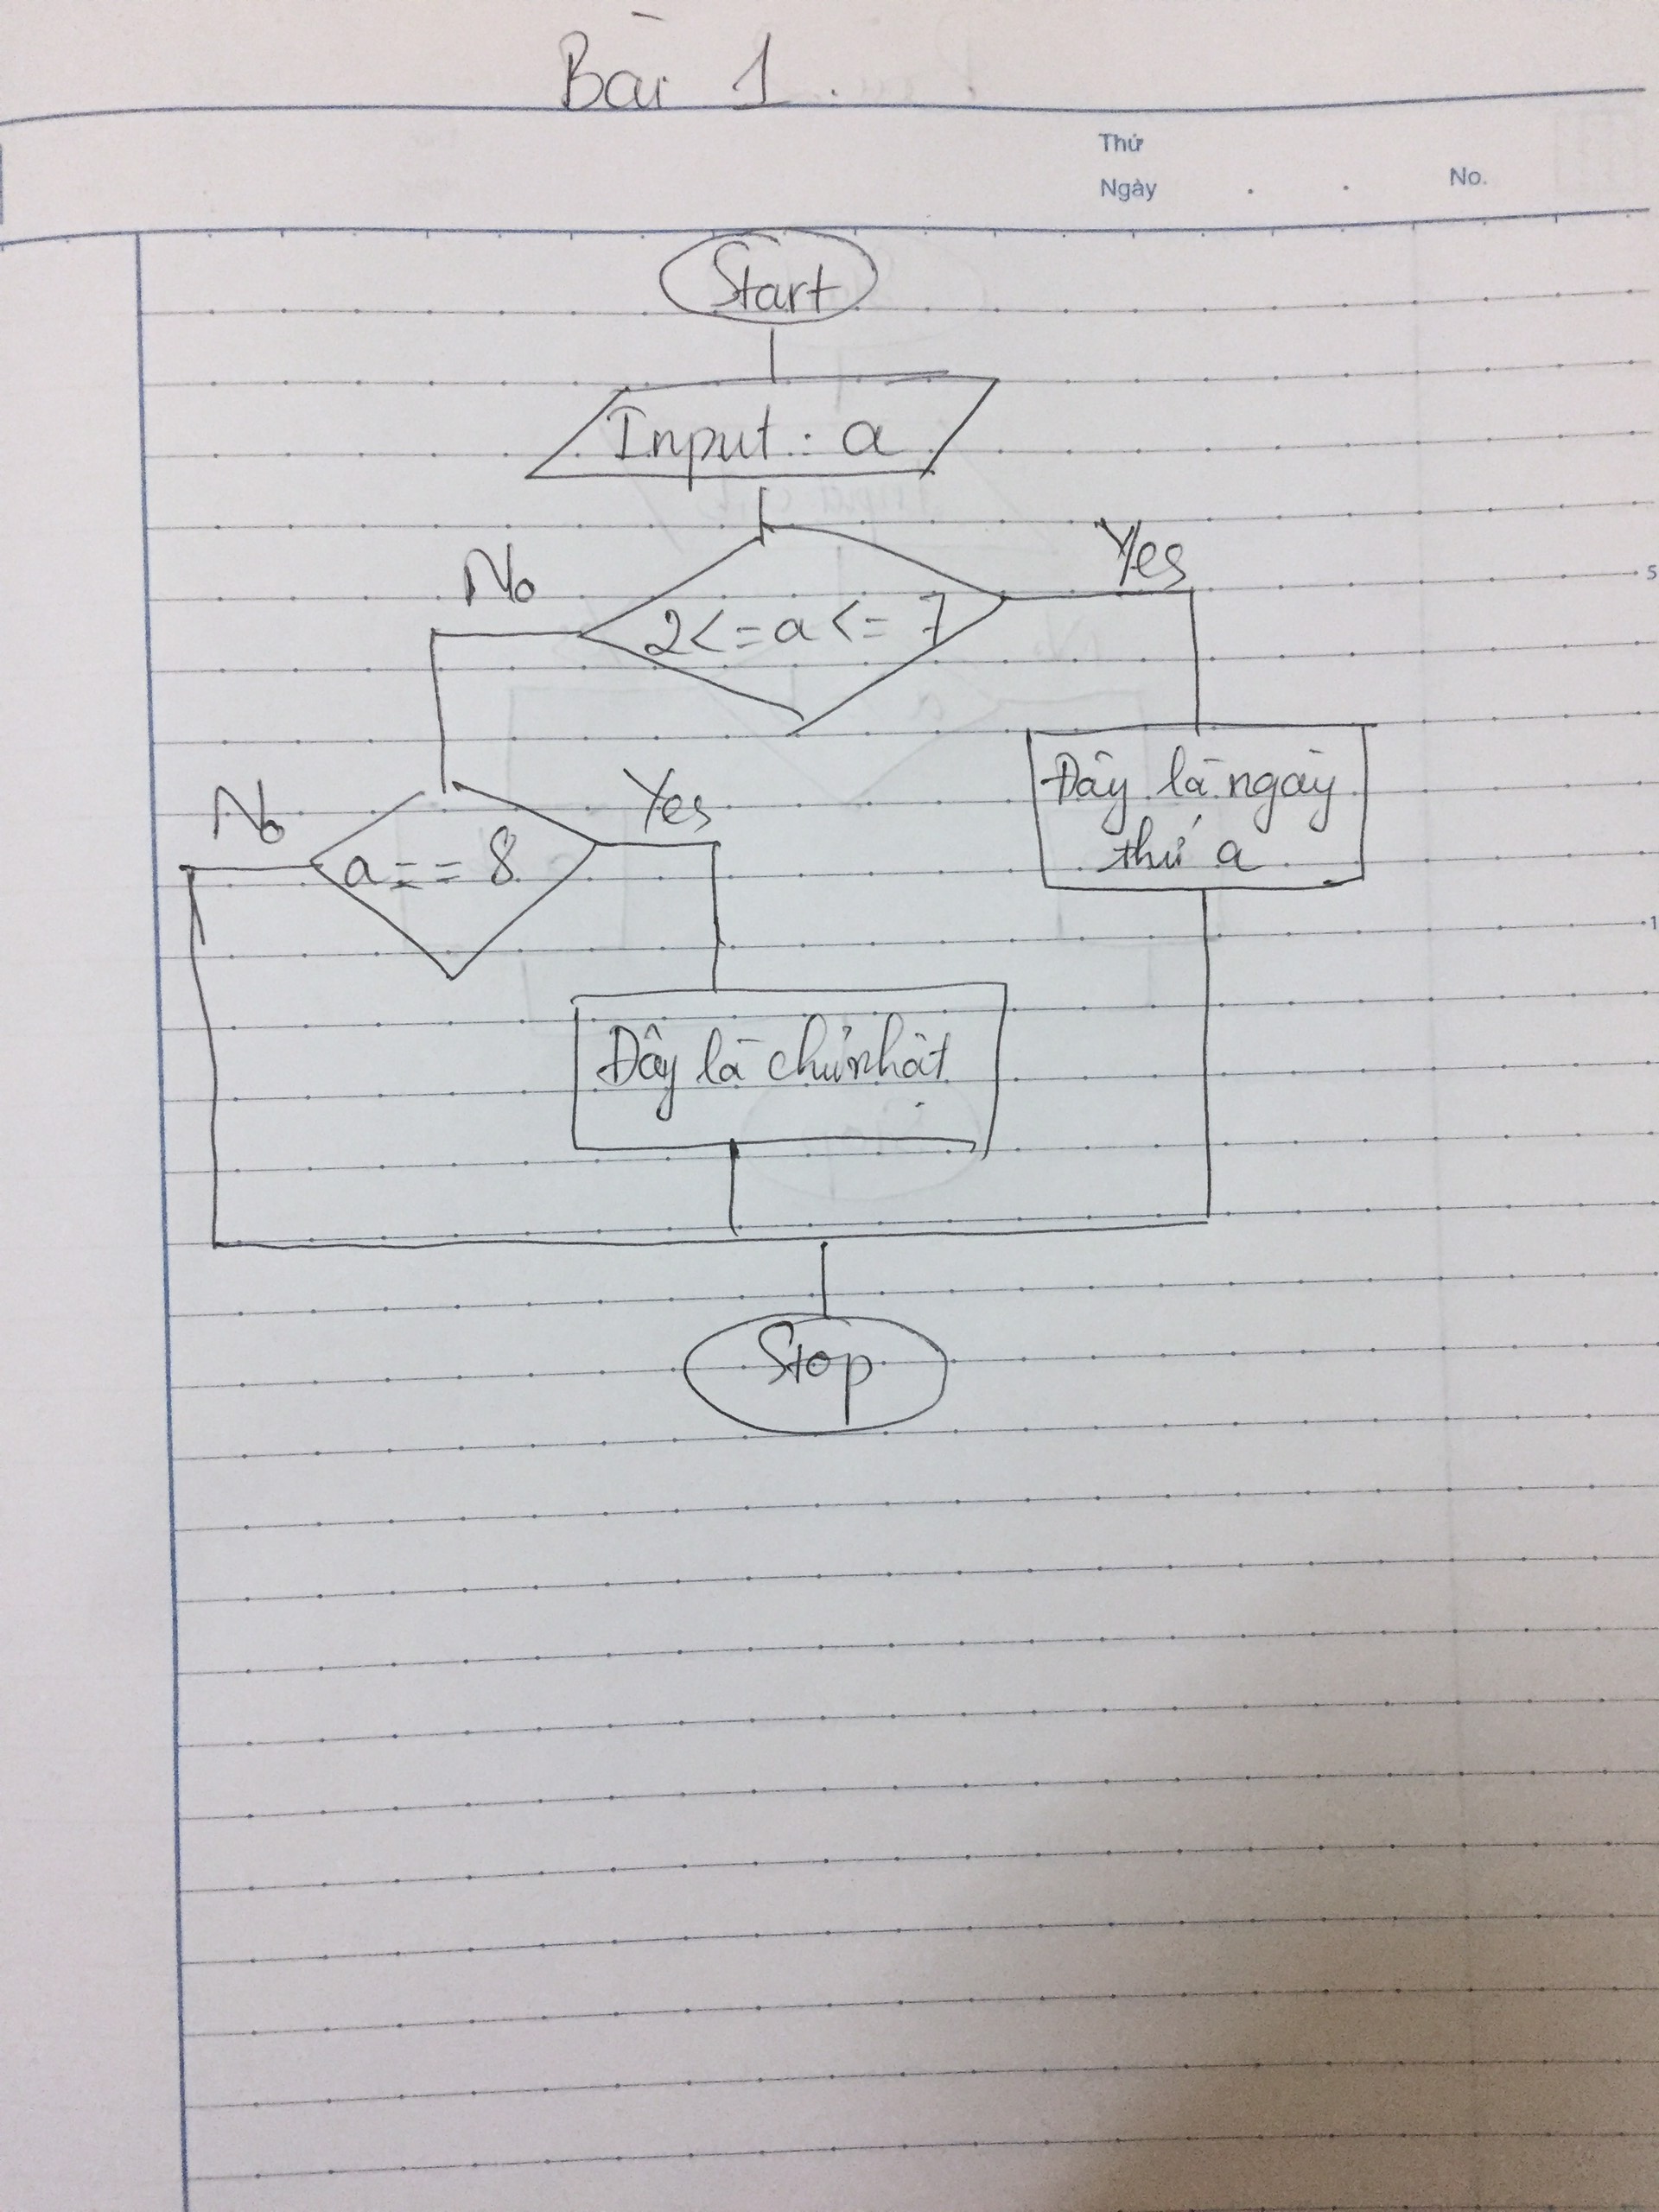 Bài 1.
Thứ
Ngày
No.
Start
Input: a
No
Yes
2<=a<=7
5
No
Yes
Đây là ngày
thứ a
a==8
1
Đây là chủ nhật
Stop